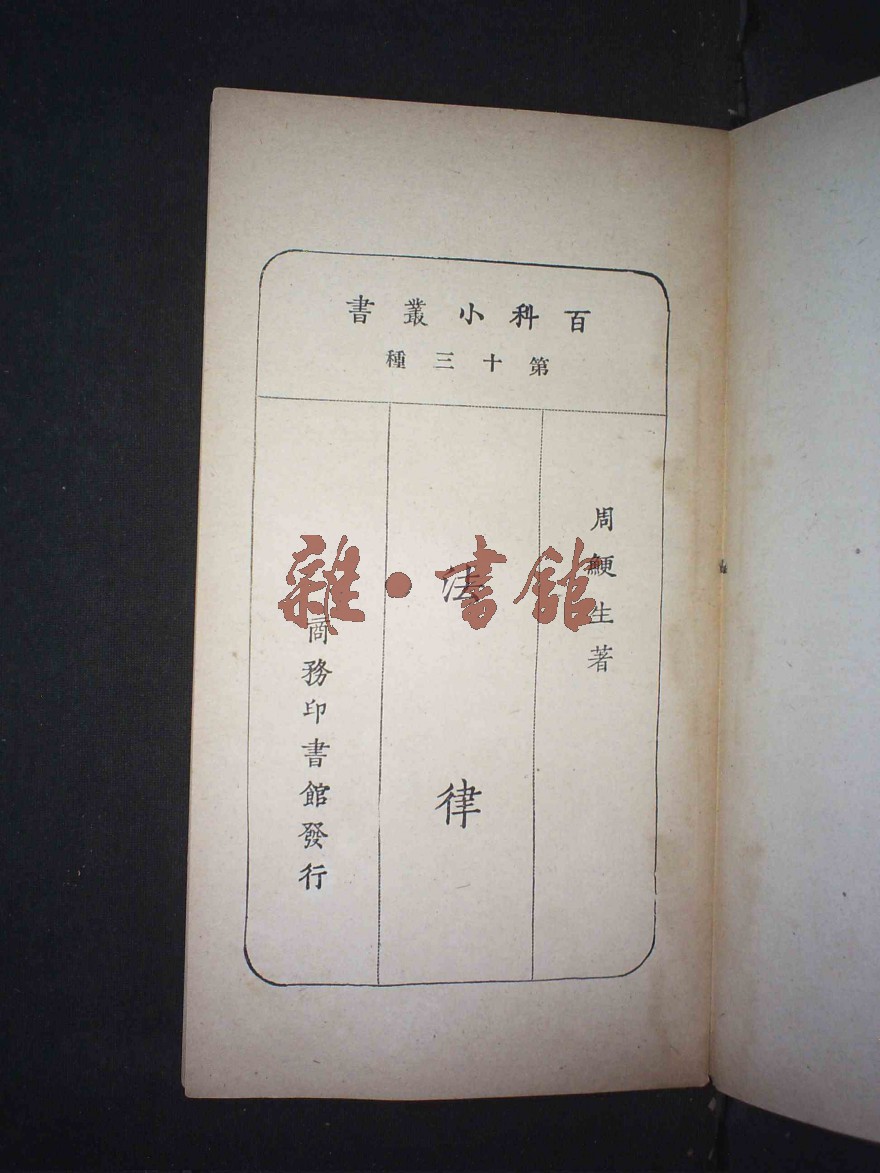 百科小叢書
第十三種
周鯁生著
法律
商務印書館發行
雜·書館